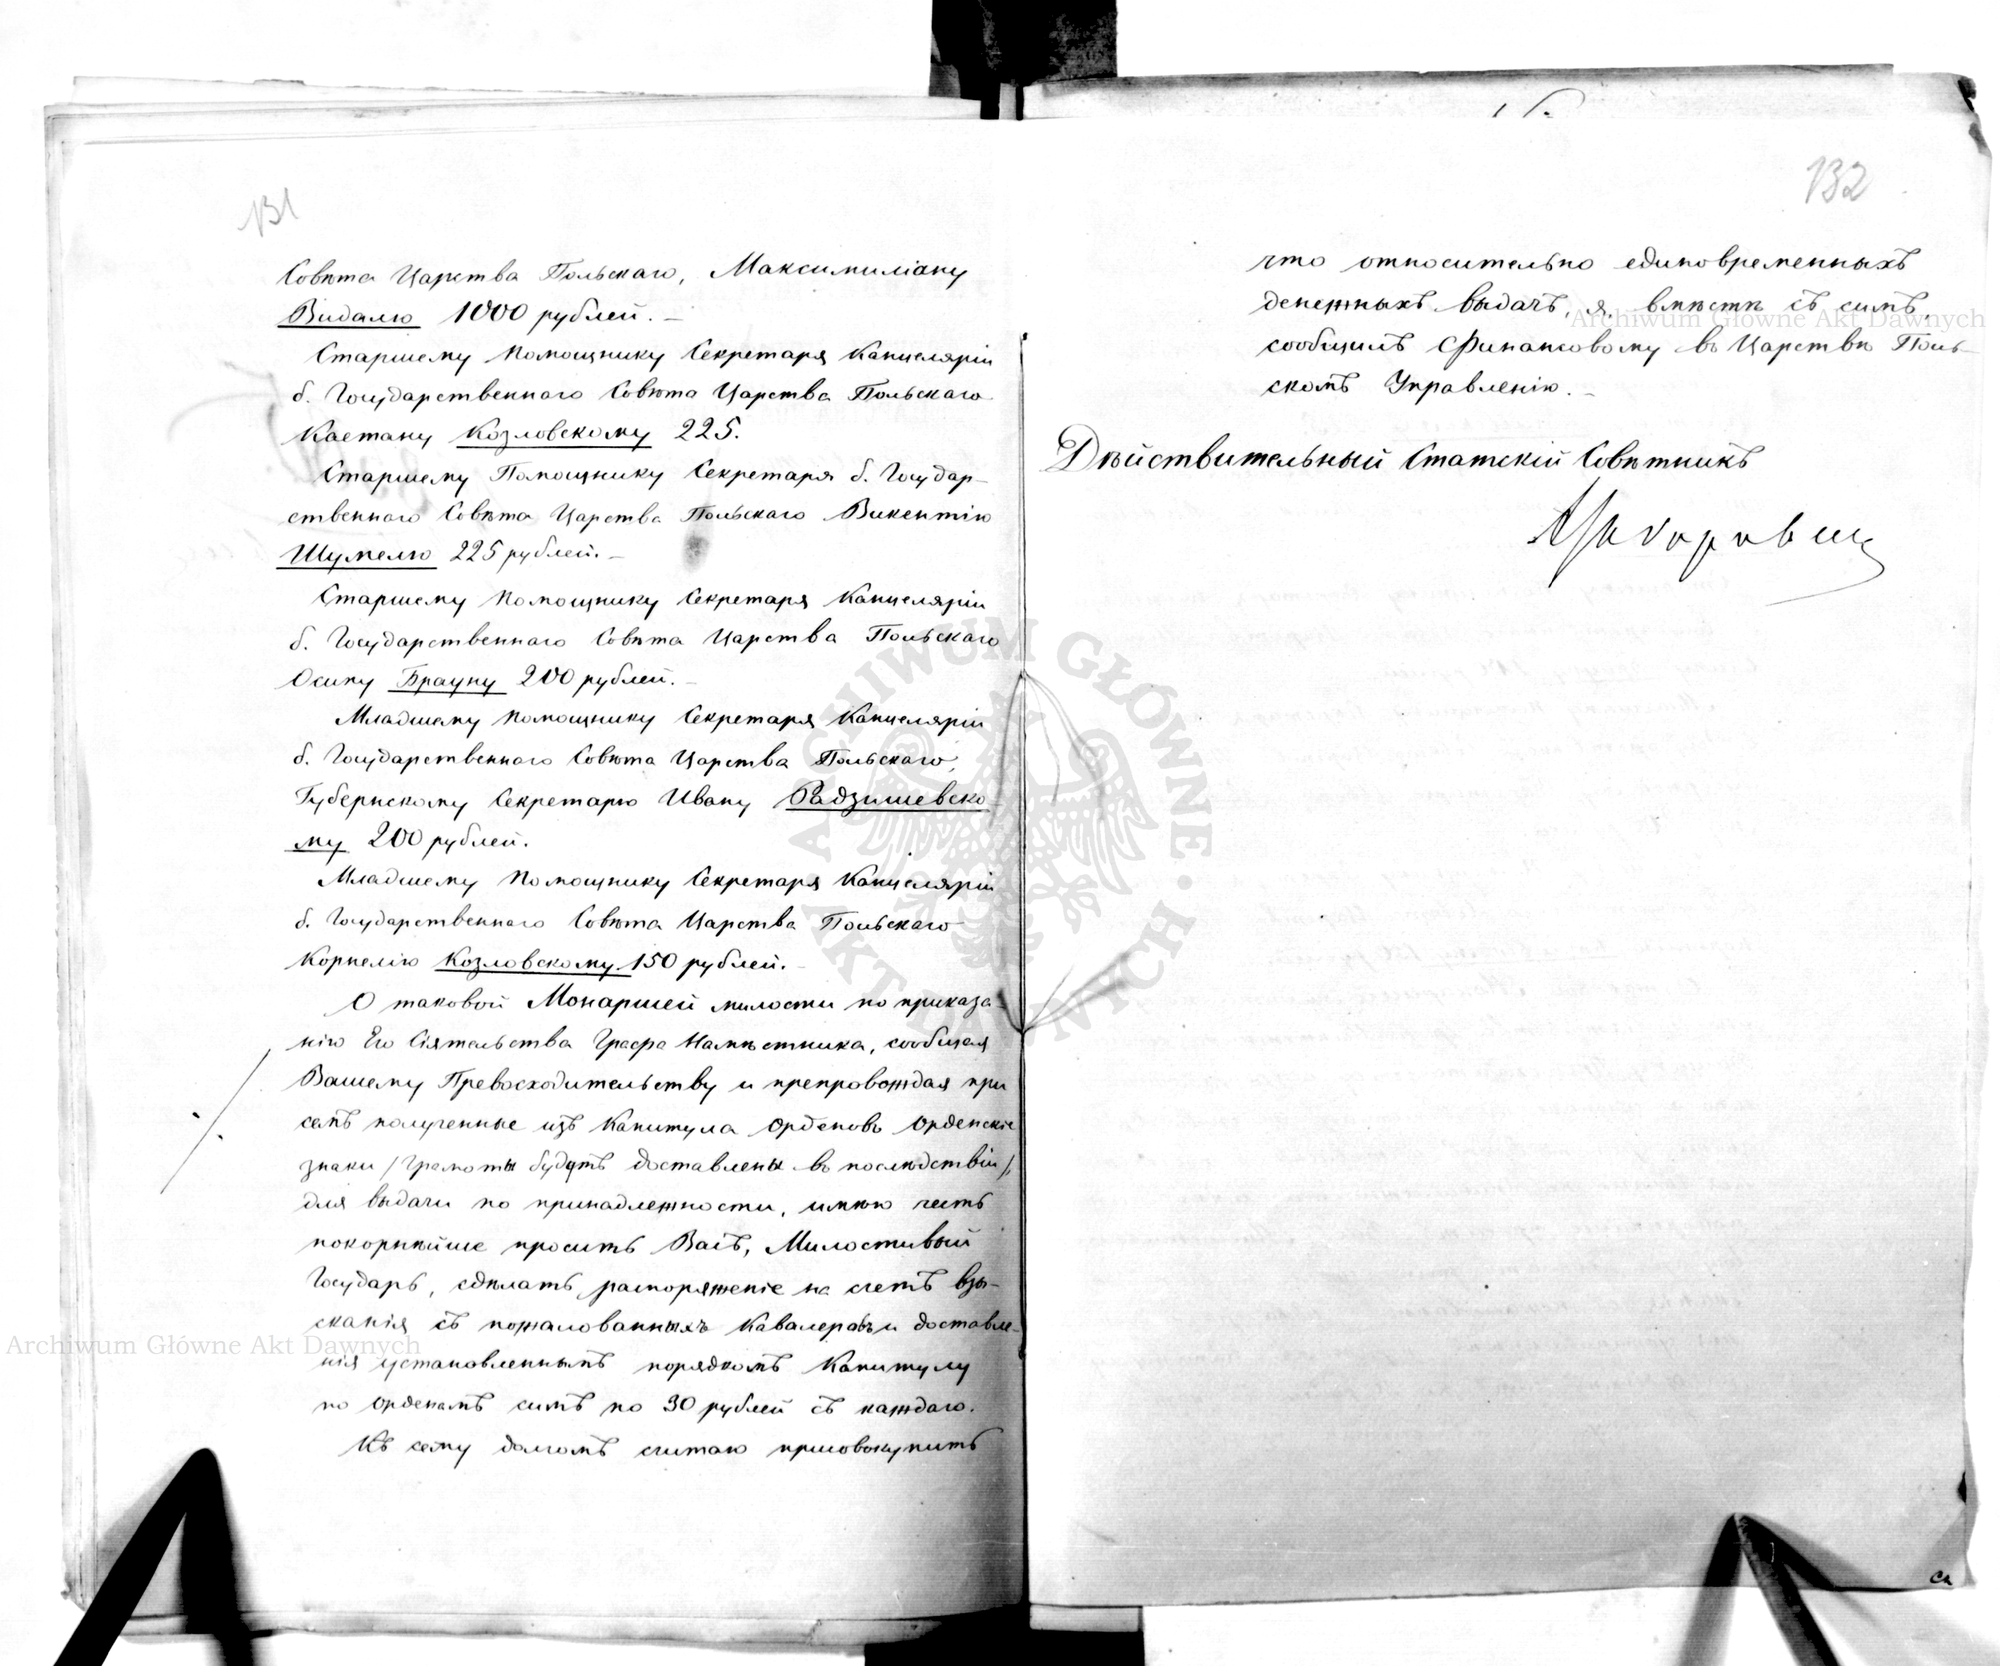 131
Совѣта Царства Польскаго, Максимиліану
Видалю 1000 рублей. —
Старшему Помощнику Секретаря Канцеляріи
б. Государственнаго Совѣта Царства Польскаго
Каетану Козловскому 225.
Старшему Помощнику Секретаря б. Государ-
ственнаго Совѣта Царства Польскаго Викентію
Шумелю 225 рублей. —
Старшему Помощнику Секретаря Канцеляріи
б. Государственнаго Совѣта Царства Польскаго
Осипу Брауну 200 рублей. —
Младшему Помощнику Секретаря Канцеляріи
б. Государственнаго Совѣта Царства Польскаго,
Губернскому Секретарю Ивану Радзишевско-
му 200 рублей.
Младшему Помощнику Секретаря Канцеляріи
б. Государственнаго Совѣта Царства Польскаго
Корнелію Козловскому 150 рублей. —
О таковой Монаршей милости по приказа-
нію Его Сіятельства Графа Намѣстника, сообщая
Вашему Превосходительству и препровождая при
семъ полученные изъ Капитула Орденовъ Орденскіе
знаки /грамоты будутъ доставлены въ послѣдствіи/,
для выдачи по принадлежности, имѣю честь
покорнѣйше просить Васъ, Милостивый
Государь, сдѣлать распоряженіе на счетъ взы-
сканія съ пожалованныхъ Кавалеровъ и доставле-
нія установленнымъ порядкомъ Капитулу
по орденамъ симъ по 30 рублей съ каждаго.
Къ сему долгомъ считаю присовокупить
132
что относительно единовременныхъ
денежныхъ выдачъ, я, вмѣстѣ съ симъ,
сообщилъ Финансовому въ Царствѣ Поль-
скомъ Управленію. —
Дѣйствительный Статскій Совѣтникъ
Archiwum Główne Akt Dawnych
Archiwum Główne Akt Dawnych
ARCHIWUM GŁÓWNE AKT DAWNYCH